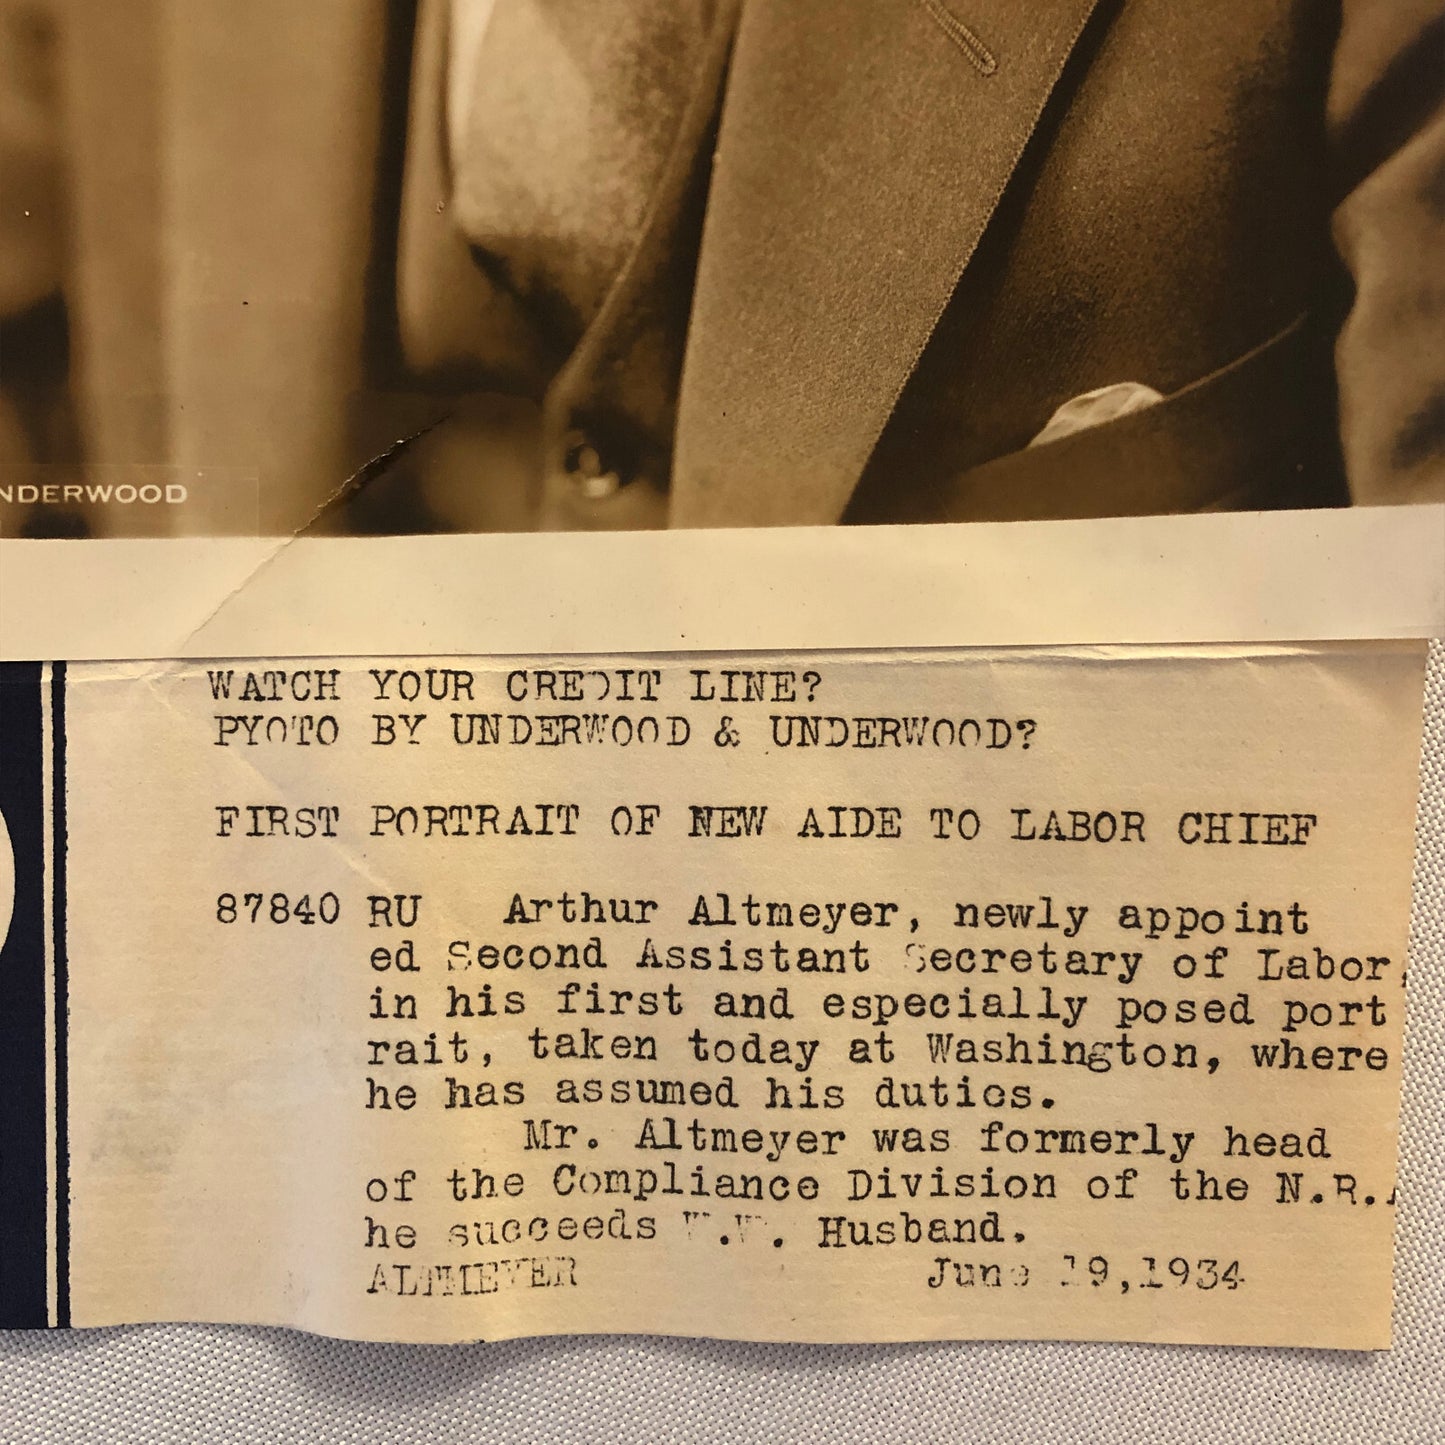 NDERWOOD
WATCH YOUR CREDIT LINE?
PYOTO BY UNDERWOOD & UNDERWOOD?
FIRST PORTRAIT OF NEW AIDE TO LABOR CHIEF
87840 RU Arthur Altmeyer, newly appoint
ed Second Assistant Secretary of Labor,
in his first and especially posed port
rait, taken today at Washington, where
he has assumed his duties.
Mr. Altmeyer was formerly head
of the Compliance Division of the N.R.A
he succeeds W.W. Husband.
ALTMEYER June 19,1934